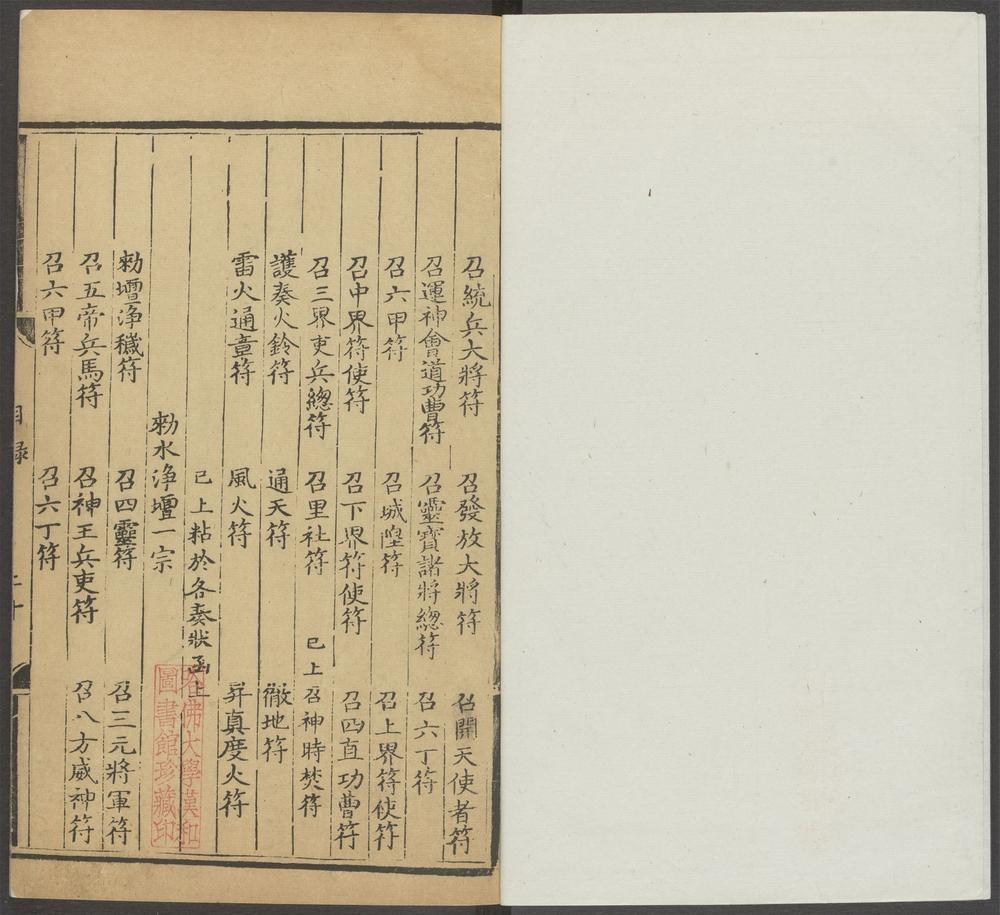 召統兵大將符 召發放大將符 召開天使者符
召運神會道功曹符 召靈寶諸將總符 召六丁符
召六甲符 召城隍符 召上界符使符
召中界符使符 召下界符使符 召四直功曹符
召三界吏兵總符 召里社符 已上召神時焚符
護奏火鈴符 通天符 徹地符
雷火通章符 風火符 昇真度火符
已上粘於各奏狀函上
勑水淨壇一宗
勑壇淨穢符 召四靈符 召三元將軍符
召五帝兵馬符 召神王兵吏符 召八方威神符
召六甲符 召六丁符
目録
二十
佛大學漢和
圖書館珍藏印